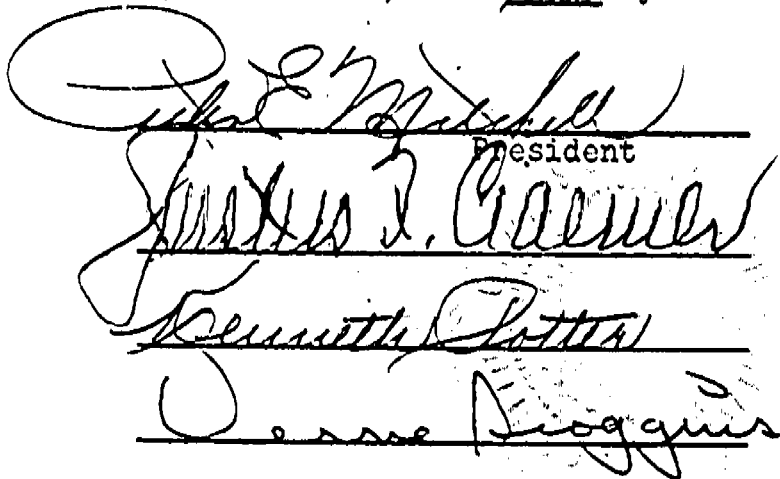 Peter E. Mitchell
President
Justus F. Craemer
Kenneth Potter
Jesse Scoggins